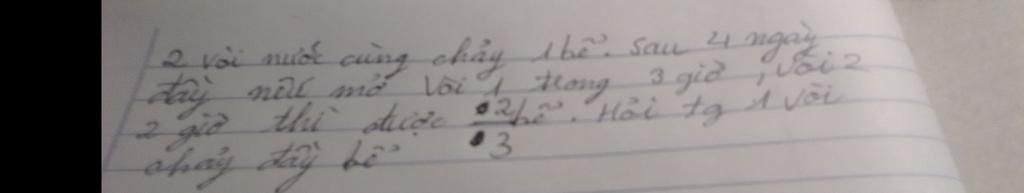 2 vòi nước cùng chảy 1 bể. Sau 4 ngày
đầy nếu mở Vòi 1 trong 3 giờ, Vòi 2
2 giờ thì được 2/3 bể. Hỏi tg 1 vòi
chảy đầy bể